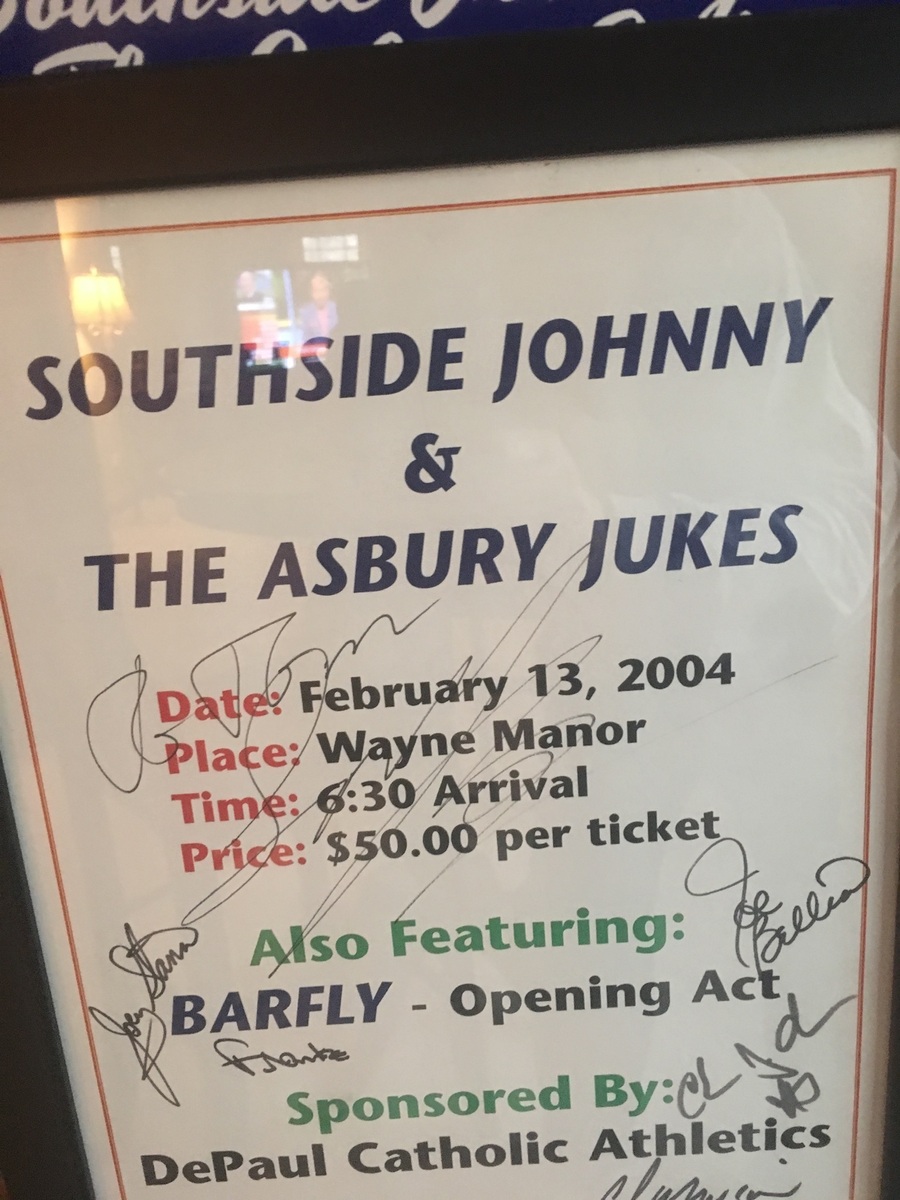 Southside
SOUTHSIDE JOHNNY
&
THE ASBURY JUKES
Date: February 13, 2004
Place: Wayne Manor
Time: 6:30 Arrival
Price: $50.00 per ticket
Also Featuring:
Joe
BARFLY - Opening Act
Sponsored By:
DePaul Catholic Athletics